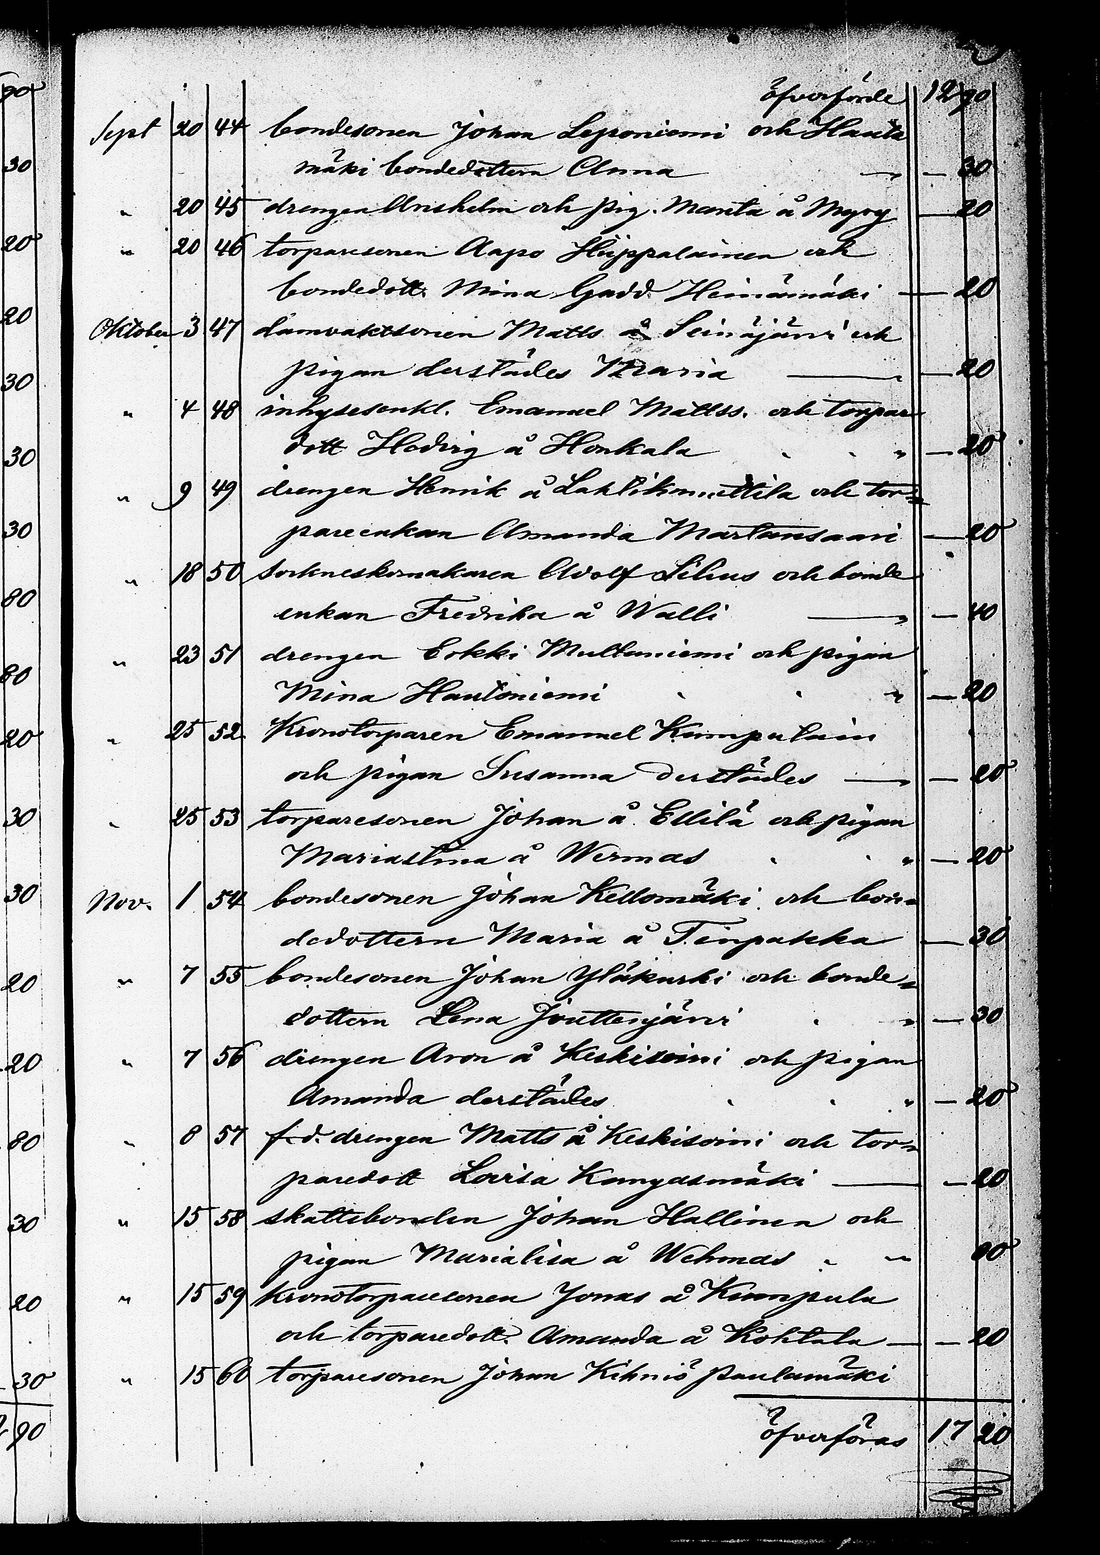 öfverförde 12 90
Sept 20 44 bondesonen Johan Leponiemi och Hauta
mäki bondedottern Anna " — 30
" 20 45 drengen Anshelm och pig. Manta å Myry — 20
" 20 46 torparesonen Aapo Hippalainen och
bondedott. Mina Gadd Heinämäki — 20
Oktober 3 47 damvaktsonen Matts å Seinäjärvi och
pigan derstädes Maria — 20
" 4 48 inhysesenkl. Emanuel Mattss. och torpar
dott Hedvig å Honkala " — 20
" 9 49 drengen Henrik å och tor=
pareenkan Amanda Martansaari — 20
" 18 50 Sockneskomakaren Adolf Silius och bonde
enkan Fredrika å Walli " — 40
" 23 51 drengen Erkki Multaniemi och pigan
Mina Hautoniemi " — 20
" 25 52 Kronotorparen Emanuel Kumpulain
och pigan Susanna derstädes — 20
" 25 53 torparesonen Johan å Ellilä och pigan
Mariastina å Wermas " — 20
Nov. 1 54 bondesonen Johan Kellomäki och bon=
dedottern Maria å Finpakka — 30
" 7 55 bondesonen Johan Yläkurki och bonde=
dottern Lena Jouttenjärvi " — 30
" 7 56 drengen Aron å Keskisoini och pigan
Amanda derstädes " — 20
" 8 57 f.d. drengen Matts å Keskisoini och tor=
paredott Lovisa Kangasmäki — 20
" 15 58 skattebonden Johan Hallinen och
pigan Marialisa å Wehmas " 80
" 15 59 kronotorparesonen Jonas å Kumpula
och torparedott. Amanda å Kohtala — 20
" 15 60 torparesonen Johan Kihniö Paulamäki
öfverföras 17 20